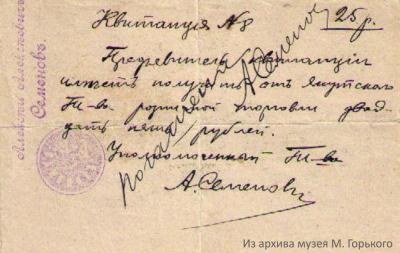 Квитанция № 8
25 р.
Предъявитель квитанции
имеетъ получить отъ Якутскаго
Т-ва розничной торговли двад-
цать пять рублей.
Уполномоченный Т-ва
А. Семеновъ
А Семенов
Алексѣй
Семеновъ.
Из архива музея М. Горького